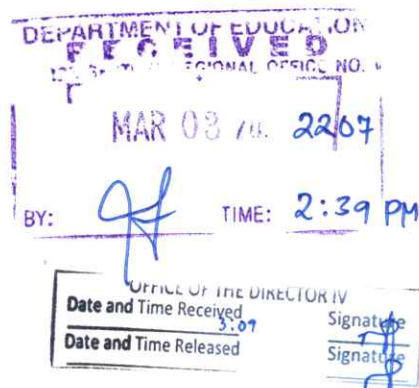 DEPARTMENT OF EDUCATION
RECEIVED
REGIONAL OFFICE NO.
MAR 03 2207
BY: TIME: 2:39 PM
OFFICE OF THE DIRECTOR IV
Date and Time Received 3:09 Signature
Date and Time Released Signature